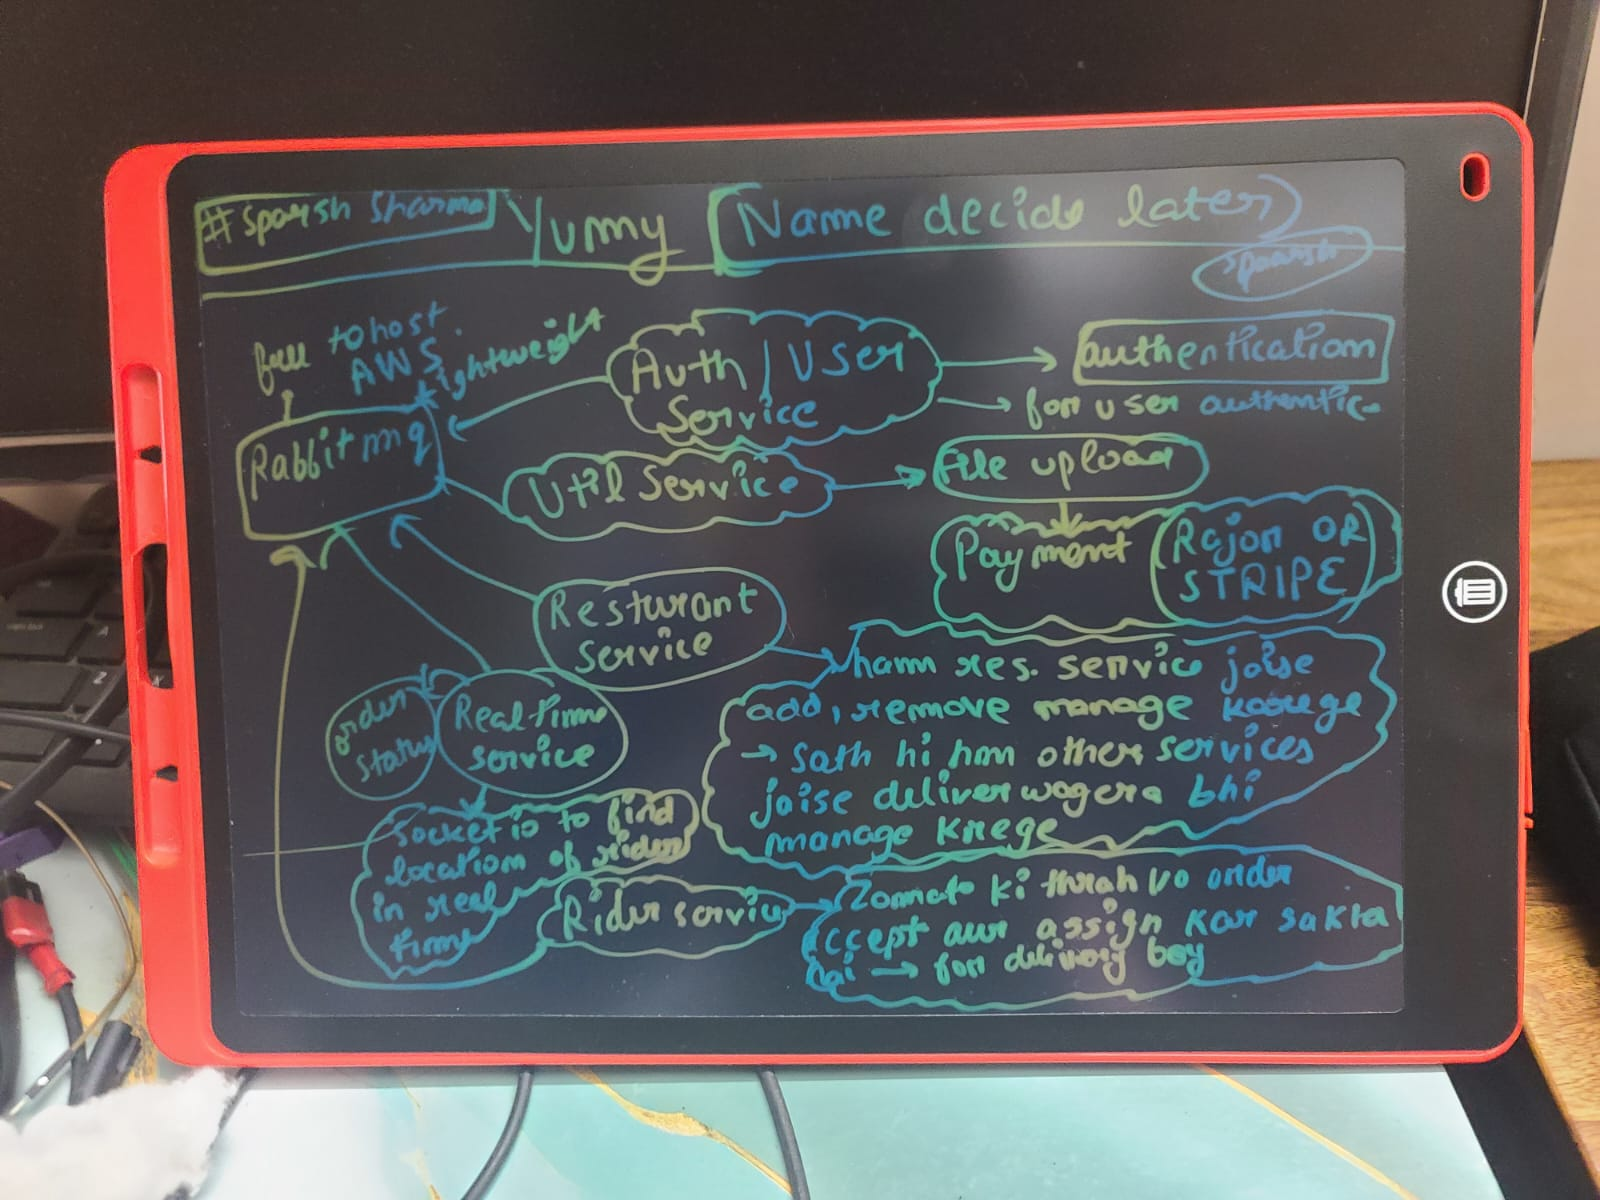 # Sparsh Sharma
Yummy [Name decide later)
Sparsh
free to host
AWS
lightweight
Rabbitmq
Auth / User
Service
authentication
for user authentic
Util Service
File upload
Payment
Rajor OR
STRIPE
Resturant
Service
ham res. service jaise
add, remove manage karege
→ sath hi hm other services
jaise deliver wagera bhi
manage krege
order
status
Real time
service
Socket io to find
location of rider
in real
time
Rider service
Zomato ki thrah vo order
accept aur assign kar sakta
hai → for delivery boy
A
Z